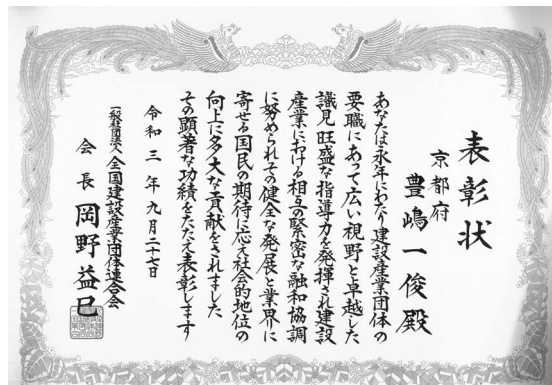 表彰状
京都府
豊嶋一俊殿
あなたは永年にわたり建設産業団体の
要職にあって広い視野と卓越した
識見旺盛な指導力を発揮され建設
産業における相互の緊密な融和協調
に努められその健全な発展と業界に
寄せる国民の期待に応え社会的地位の
向上に多大な貢献をされました
その顕著な功績をたたえ表彰します
令和三年九月二十七日
一般社団法人全国建設産業団体連合会
会長岡野益巳